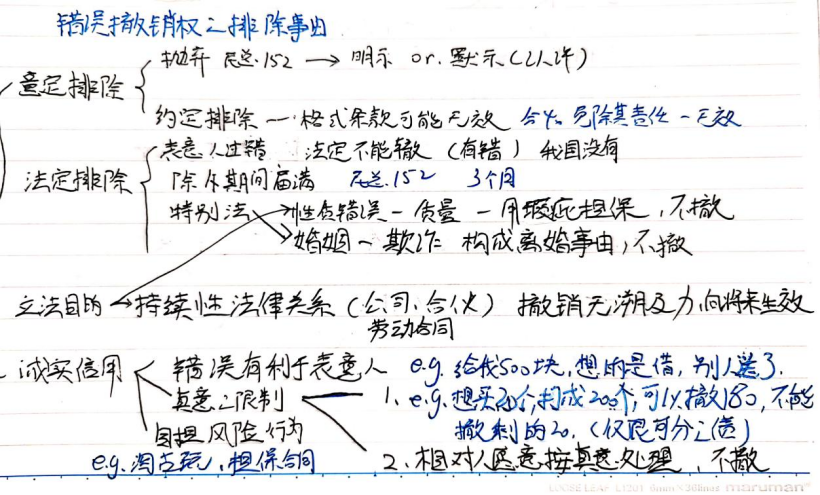 错误撤销权之排除事由
意定排除
抛弃 民总.152 → 明示 or. 默示(认许)
约定排除 — 格式条款可能无效 合40 免除其责任 - 无效
法定排除
表意人过错 法定不能撤 (有错) 我国没有
除斥期间届满 民总.152 3个月
特别法 → 性质错误 - 质量 - 用瑕疵担保,不撤
→ 婚姻 - 欺诈 构成离婚事由,不撤
立法目的 → 持续性法律关系(公司、合伙) 撤销无溯及力,向将来生效
劳动合同
诚实信用
错误有利于表意人 e.g. 给我500块,想的是借,别人送了.
真意之限制 1. e.g. 想买20个,构成200个,可以撤180,不能
撤剩的20. (仅限可分之债)
自担风险行为
e.g. 淘古玩,担保合同
2. 相对人愿意按真意处理,不撤
LOOSE LEAF L1201 6mm×30lines maruman